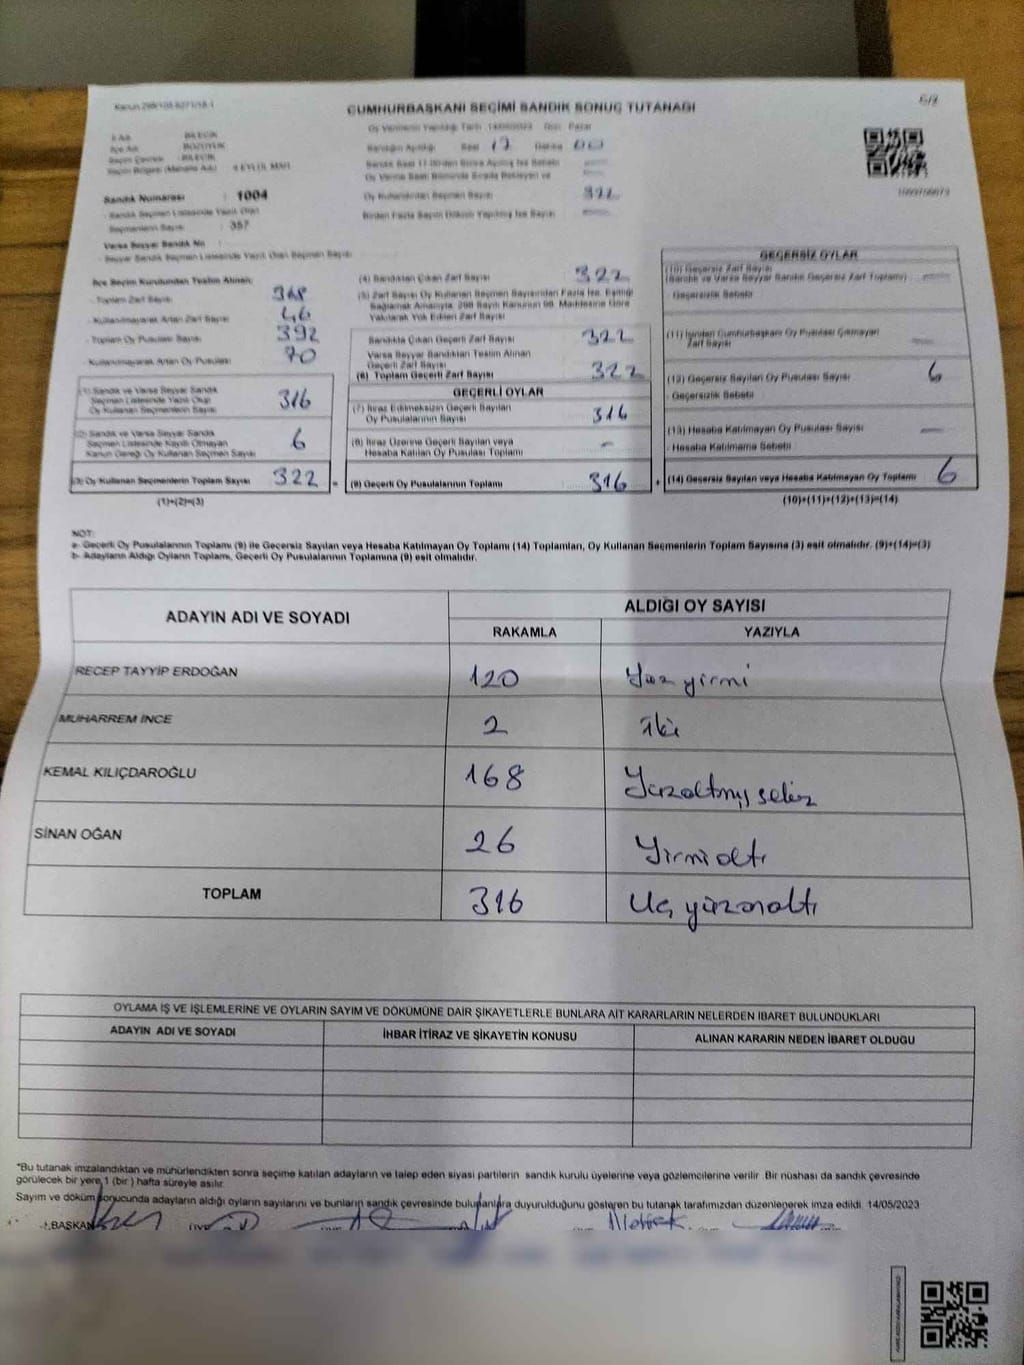 Kanun 298/105-6271/18-1
CUMHURBAŞKANI SEÇİMİ SANDIK SONUÇ TUTANAĞI
İl Adı : BİLECİK
İlçe Adı : BOZÜYÜK
Seçim Çevresi : BİLECİK
Seçim Bölgesi (Mahalle Adı) : 4 EYLÜL MAH.
Sandık Numarası : 1004
- Sandık Seçmen Listesinde Yazılı Olan
Seçmenlerin Sayısı : 357
Varsa Seyyar Sandık No :
- Seyyar Sandık Seçmen Listesinde Yazılı Olan Seçmen Sayısı :
Oy Vermenin Yapıldığı Tarih : 14/05/2023 Gün : Pazar
Sandığın Açıldığı Saat 17 Dakika 00
Sandık Saat 17.00'den Sonra Açılmış İse Sebebi
Oy Verme Saati Bitiminde Sırada Bekleyen ve
Oy Kullandırılan Seçmen Sayısı 322
Birden Fazla Sayım Döküm Yapılmış İse Sayısı
İlçe Seçim Kurulundan Teslim Alınan;
- Toplam Zarf Sayısı 368
- Kullanılmayarak Artan Zarf Sayısı 46
- Toplam Oy Pusulası Sayısı 392
- Kullanılmayarak Artan Oy Pusulası 70
(1) Sandık ve Varsa Seyyar Sandık
Seçmen Listesinde Yazılı Olup
Oy Kullanan Seçmenlerin Sayısı 316
(2) Sandık ve Varsa Seyyar Sandık
Seçmen Listesinde Kayıtlı Olmayan
Kanun Gereği Oy Kullanan Seçmen Sayısı 6
(3) Oy Kullanan Seçmenlerin Toplam Sayısı 322 =
(1)+(2)=(3)
(4) Sandıktan Çıkan Zarf Sayısı 322
(5) Zarf Sayısı Oy Kullanan Seçmen Sayısından Fazla İse, Eşitliği
Sağlamak Amacıyla, 298 Sayılı Kanunun 98. Maddesine Göre
Yakılarak Yok Edilen Zarf Sayısı
Sandıkta Çıkan Geçerli Zarf Sayısı 322
Varsa Seyyar Sandıktan Teslim Alınan
Geçerli Zarf Sayısı
(6) Toplam Geçerli Zarf Sayısı 322
GEÇERLİ OYLAR
(7) İtiraz Edilmeksizin Geçerli Sayılan
Oy Pusulalarının Sayısı 316
(8) İtiraz Üzerine Geçerli Sayılan veya
Hesaba Katılan Oy Pusulası Toplamı -
(9) Geçerli Oy Pusulalarının Toplamı 316 +
GEÇERSİZ OYLAR
(10) Geçersiz Zarf Sayısı
(Sandık ve Varsa Seyyar Sandık Geçersiz Zarf Toplamı)
- Geçersizlik Sebebi
(11) İçinden Cumhurbaşkanı Oy Pusulası Çıkmayan
Zarf Sayısı
(12) Geçersiz Sayılan Oy Pusulası Sayısı 6
- Geçersizlik Sebebi
(13) Hesaba Katılmayan Oy Pusulası Sayısı
- Hesaba Katılmama Sebebi
(14) Geçersiz Sayılan veya Hesaba Katılmayan Oy Toplamı 6
(10)+(11)+(12)+(13)=(14)
NOT:
a- Geçerli Oy Pusulalarının Toplamı (9) ile Geçersiz Sayılan veya Hesaba Katılmayan Oy Toplamı (14) Toplamları, Oy Kullanan Seçmenlerin Toplam Sayısına (3) eşit olmalıdır. (9)+(14)=(3)
b- Adayların Aldığı Oyların Toplamı, Geçerli Oy Pusulalarının Toplamına (9) eşit olmalıdır.
ADAYIN ADI VE SOYADI ALDIĞI OY SAYISI
RAKAMLA YAZIYLA
RECEP TAYYİP ERDOĞAN 120 Yüz yirmi
MUHARREM İNCE 2 iki
KEMAL KILIÇDAROĞLU 168 Yüzaltmış sekiz
SİNAN OĞAN 26 Yirmialtı
TOPLAM 316 Üç yüzonaltı
OYLAMA İŞ VE İŞLEMLERİNE VE OYLARIN SAYIM VE DÖKÜMÜNE DAİR ŞİKAYETLERLE BUNLARA AİT KARARLARIN NELERDEN İBARET BULUNDUKLARI
ADAYIN ADI VE SOYADI İHBAR İTİRAZ VE ŞİKAYETİN KONUSU ALINAN KARARIN NEDEN İBARET OLDUĞU
*Bu tutanak imzalandıktan ve mühürlendikten sonra seçime katılan adayların ve talep eden siyasi partilerin sandık kurulu üyelerine veya gözlemcilerine verilir. Bir nüshası da sandık çevresinde
görülecek bir yere 1 (bir) hafta süreyle asılır.
Sayım ve döküm sonucunda adayların aldığı oyların sayılarını ve bunların sandık çevresinde bulunanlara duyurulduğunu gösteren bu tutanak tarafımızdan düzenlenerek imza edildi. 14/05/2023
BAŞKAN